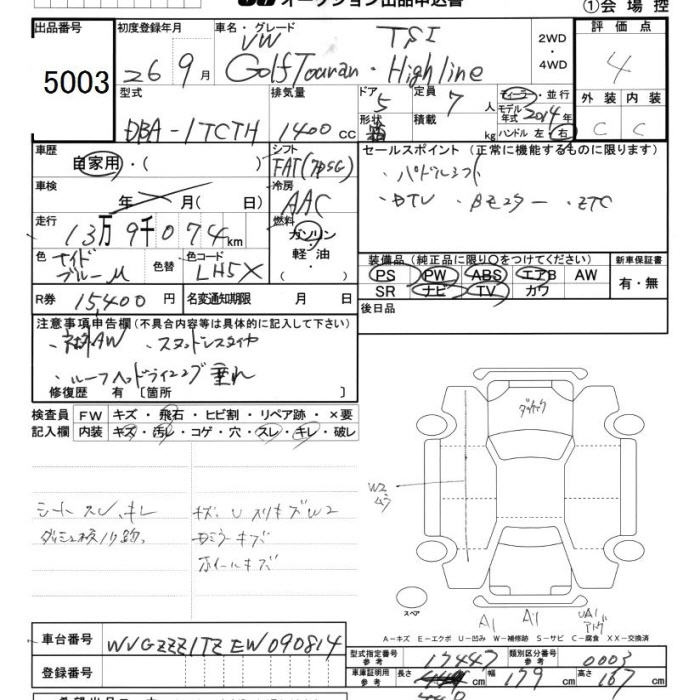 オークション出品申込書
①会場控
出品番号
5003
初度登録年月
26 9月
車名・グレード
VW TSI
GolfTouran・Highline
2WD・4WD
評価点
4
型式
DBA-1TCTH
排気量
1400cc
ドア
5
形状
定員
7人
積載
kg
ディーラー・並行
モデル年式 2014年
ハンドル 左・右
外装 内装
C C
車歴
自家用・( )
シフト
FAT(7DSG)
車検
年 月( 日)
冷房
AAC
走行
13万9千074km
燃料
ガソリン・軽油・( )
色
ナイトブルーM
色替
色コード
LH5X
R券 15,400円
名変通知期限 月 日
セールスポイント(正常に機能するものに限ります)
・パドルシフト
・DTV ・Bモニター ・ETC
装備品(純正品に限り○をつけてください)
PS PW ABS エアB AW
SR ナビ TV カワ
新車保証書
有・無
後日品
注意事項申告欄(不具合内容等は具体的に記入して下さい)
・社外AW ・スタッドレスタイヤ
・ルーフヘッドライニング垂れ
修復歴 有〔箇所 〕
検査員記入欄
FW キズ・飛石・ヒビ割・リペア跡・×要
内装 キズ・汚レ・コゲ・穴・スレ・キレ・破レ
シートスレ、キレ
キズ、U スリキズW2
ミラーキズ
ホイールキズ
W2
ムラ
スペア
A1 A1 UA1
A-キズ E-エクボ U-凹み W-補修跡 S-サビ C-腐食 XX-交換済
車台番号 WVGZZZ1TZEW090814
登録番号
型式指定番号 参考 17447
類別区分番号 参考 0003
車庫証明用 参考 長さ cm 幅 179 cm 高さ 167 cm